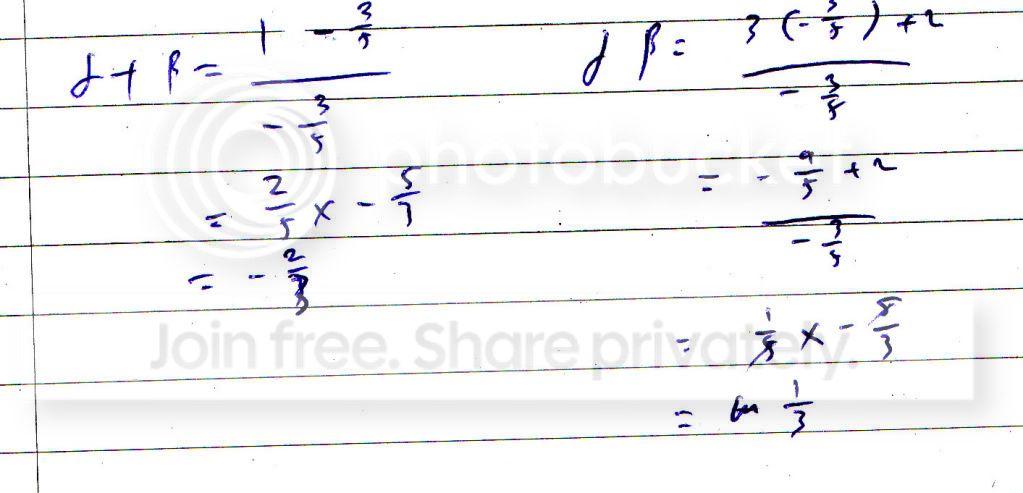 α + β = (1 - 3/5) / (- 3/5)
= 2/5 × - 5/3
= - 2/3
α β = (3 (- 3/5) + 2) / (- 3/5)
= (- 9/5 + 2) / (- 3/5)
= 1/5 × - 5/3
= 1/3
photobucket
Join free. Share privately.